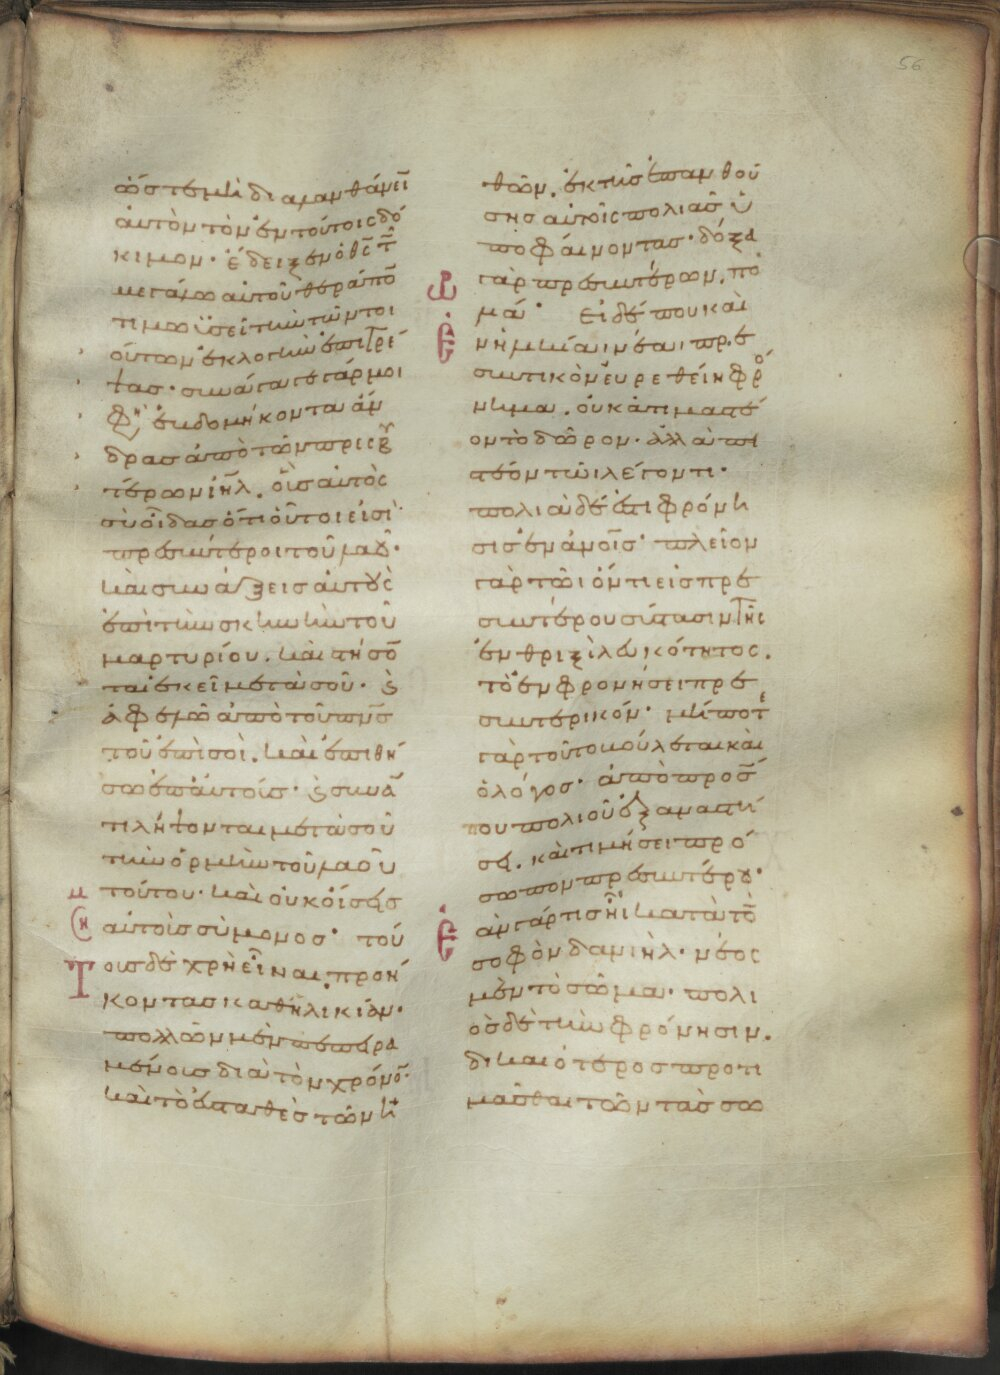 56
ὥστε μὴ διαλανθάνειν
αὐτὸν τὸν ἐν τούτοις δό
κιμον· ἔδειξεν ὁ θς τῶ
μεγάλω αὐτοῦ θεράπον
τι μωϋσεῖ τὴν τῶν τοι
ούτων ἐκλογὴν ἐπιτρέ
ψας· συνάγαγε γάρ μοι
φησὶν ἑβδομήκοντα ἄν
δρας ἀπὸ τῶν πρεσβυ
τέρων ιηλ. οὓς αὐτὸς
σὺ οἶδας ὅτι οὗτοι εἰσὶ
πρεσβύτεροι τοῦ λαοῦ·
καὶ συνάξεις αὐτοὺς
ἐπὶ τὴν σκηνὴν τοῦ
μαρτυρίου. καὶ στήσον
ται ἐκεῖ μετὰ σοῦ· καὶ
ἀφελῶ ἀπὸ τοῦ πνς
τοῦ ἐπὶ σοὶ. καὶ ἐπιθή
σω ἐπ αὐτούς· καὶ συνα
τιλήψονται μετὰ σοῦ
τὴν ὁρμὴν τοῦ λαοῦ
τούτου· καὶ οὐκ οἴσεις
αὐτοὺς σὺ μόνος· τού
ους δὲ χρὴ εἶναι προή
κοντας καθ ἡλικίαν·
πολλῶν μὲν πεπειρα
μένους διὰ τὸν χρόνον·
καὶ τὸ ἀπαθὲς τῶν η
θῶν. ἐκ τῆς ἐπανθού
σης αὐτοῖς πολιᾶς ὑ
ποφαίνοντας· δόξα
γὰρ πρεσβυτέρων. πο
λιά· εἰ δέ που καὶ
νὴ μὴ κἂν ἐν νέαι πρε
σβυτικὸν εὑρεθείη φρό
νημα. οὐκ ἀτιμαστέ
ον τὸ δῶρον· ἀλλὰ πι
στέον τῶι λέγοντι·
πολιὰ δέ ἐστι φρόνη
σις ἐν ἀνοῖς· πλεῖον
γὰρ τῶι ὄντι εἰς πρε
σβυτέρου σύστασιν τῆς
ἐν θριξὶ λευκότητος.
τὸ ἐν φρονήσει πρε
σβυτερικόν· μήποτε
γὰρ τοῦτο βούλεται καὶ
ὁ λόγος· ἀπὸ προσώ
που πολιοῦ ἐξαναστή
σει. καὶ τιμήσει πρό
σωπον πρεσβυτέρου·
ἂν γάρ τις ἦι κατὰ τὸν
σοφὸν δανιὴλ· νέος
μὲν τὸ σῶμα· πολι
ὸς δὲ τὴν φρόνησιν.
δικαιότερος προτι
μᾶσθαι τῶν τὰς σω